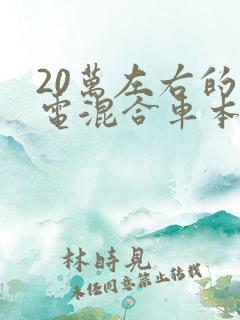 20萬左右的
電混合車本
林時見
未任同意禁止转载